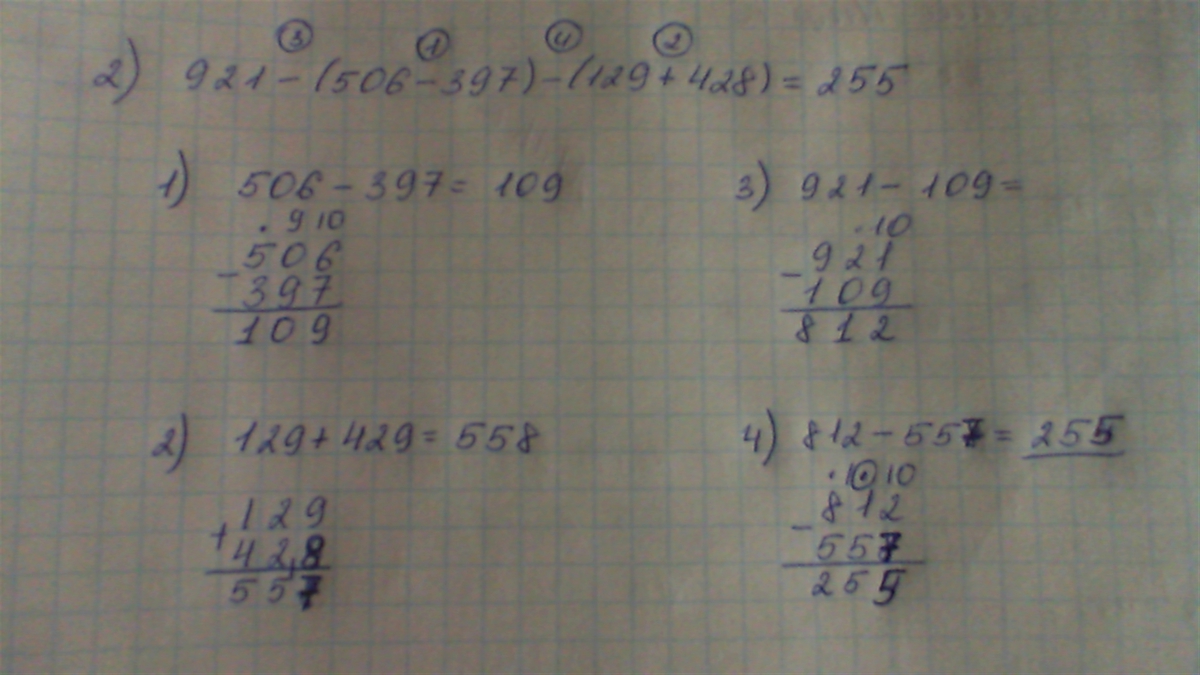 ③ ① ④ ②
2) 921 - (506 - 397) - (129 + 428) = 255
1) 506 - 397 = 109
. 9 10
- 506
397
109
3) 921 - 109 =
. 10
- 921
109
812
2) 129 + 429 = 558
+ 129
428
557
4) 812 - 557 = 255
. 10 10
- 812
557
255